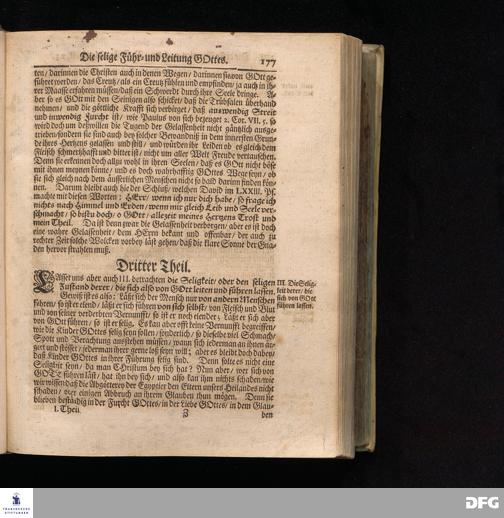 Die selige Führ- und Leitung GOttes. 177
ten/ darinnen die Christen auch in denen Wegen/ darinnen sie von GOtt ge-
führet worden/ das Creutz/ als ein Creutz fühlen und empfinden/ ja auch in ih-
rer Maasse erfahren müssen/ daß ein Schwerdt durch ihre Seele dringe. A-
ber so es GOtt mit den Seinigen also schicket/ daß die Trübsalen überhand
nehmen/ und die göttliche Krafft sich verbirget/ daß auswendig Streit
und inwendig Furcht ist/ wie Paulus von sich bezeuget 2. Cor. VII. 5. so
wird doch um deßwillen die Tugend der Gelassenheit nicht gäntzlich ausge-
trieben/ sondern sie sind auch bey solcher Bewandniß in dem innersten Grun-
de ihres Hertzens gelassen und still/ und würden ihr Leiden ob es gleich dem
Fleisch schmertzhafft und bitter ist/ nicht um aller Welt Freude vertauschen.
Denn sie erkennen doch allzu wohl in ihren Seelen/ daß es GOtt nicht böse
mit ihnen meynen könte/ und es doch wahrhafftig GOttes Wege seyn/ ob
sie sich gleich nach dem äusserlichen Menschen nicht so bald darinn finden kön-
nen. Darum bleibt auch hie der Schluß/ welchen David im LXXIII. Ps.
machte mit diesen Worten: HErr/ wenn ich nur dich habe/ so frage ich
nichts nach Himmel und Erden/ wenn mir gleich Leib und Seele ver-
schmacht/ so bistu doch/ o GOtt/ allezeit meines Hertzens Trost und
mein Theil. Da ist denn zwar die Gelassenheit verborgen/ aber es ist doch
eine wahre Gelassenheit/ dem HErrn bekant und offenbar/ der auch zu
rechter Zeit solche Wolcken vorbey läst gehen/ daß die klare Sonne der Gna-
den hervor strahlen muß.
Dritter Theil.
LAsset uns aber auch III. betrachten die Seligkeit/ oder den seligen
Zustand derer/ die sich also von GOtt leiten und führen lassen.
III. Die Selig-
keit derer/ die
sich von GOtt
führen lassen.
Gewiß ist es also: Läst sich der Mensch nur von andern Menschen
führen/ so ist er elend/ läst er sich führen von sich selbst/ von Fleisch und Blut
und von seiner verderbten Vernunfft/ so ist er noch elender; Läst er sich aber
von GOtt führen/ so ist er selig. Es kan aber offt keine Vernunfft begreiffen/
wie die Kinder GOttes selig seyn sollen/ sonderlich/ so dieselbe viel Schmach/
Spott und Verachtung ausstehen müssen/ wann sich iederman an ihnen är-
gert und stösset/ iederman ihrer gerne loß seyn will; aber es bleibt doch dabey/
daß Kinder GOttes in ihrer Führung selig sind. Denn solte es nicht eine
Seligkeit seyn/ da man CHristum bey sich hat? Nun aber/ wer sich von
GOtt führen läst/ hat ihn bey sich/ und also kan ihm nichts schaden/ wie
wir wissen/ daß die Abgötterey der Egyptier den Eltern unsers Heilandes nicht
schaden/ oder einigen Abbruch an ihrem Glauben thun mögen. Denn sie
blieben beständig in der Furcht GOttes/ in der Liebe GOttes/ in dem Glau-
I. Theil. Z den
FRANCKESCHE
STIFTUNGEN
DFG